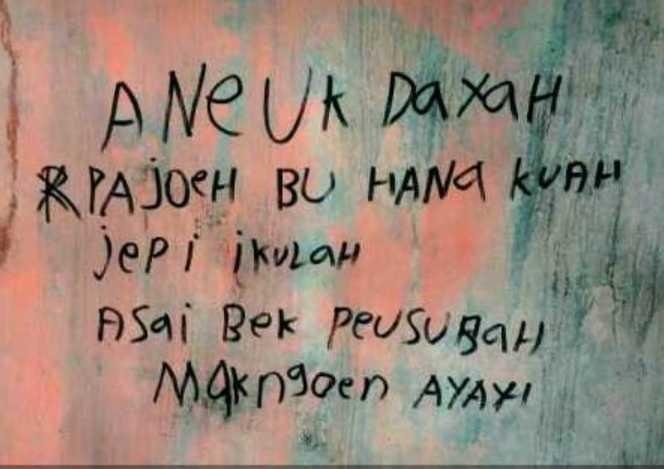 ANeUk DaYaH
PAJOeH BU HANa KUAH
jePi iKULaH
ASai Bek PeUSUSaH
Mak ngoen AYAYI